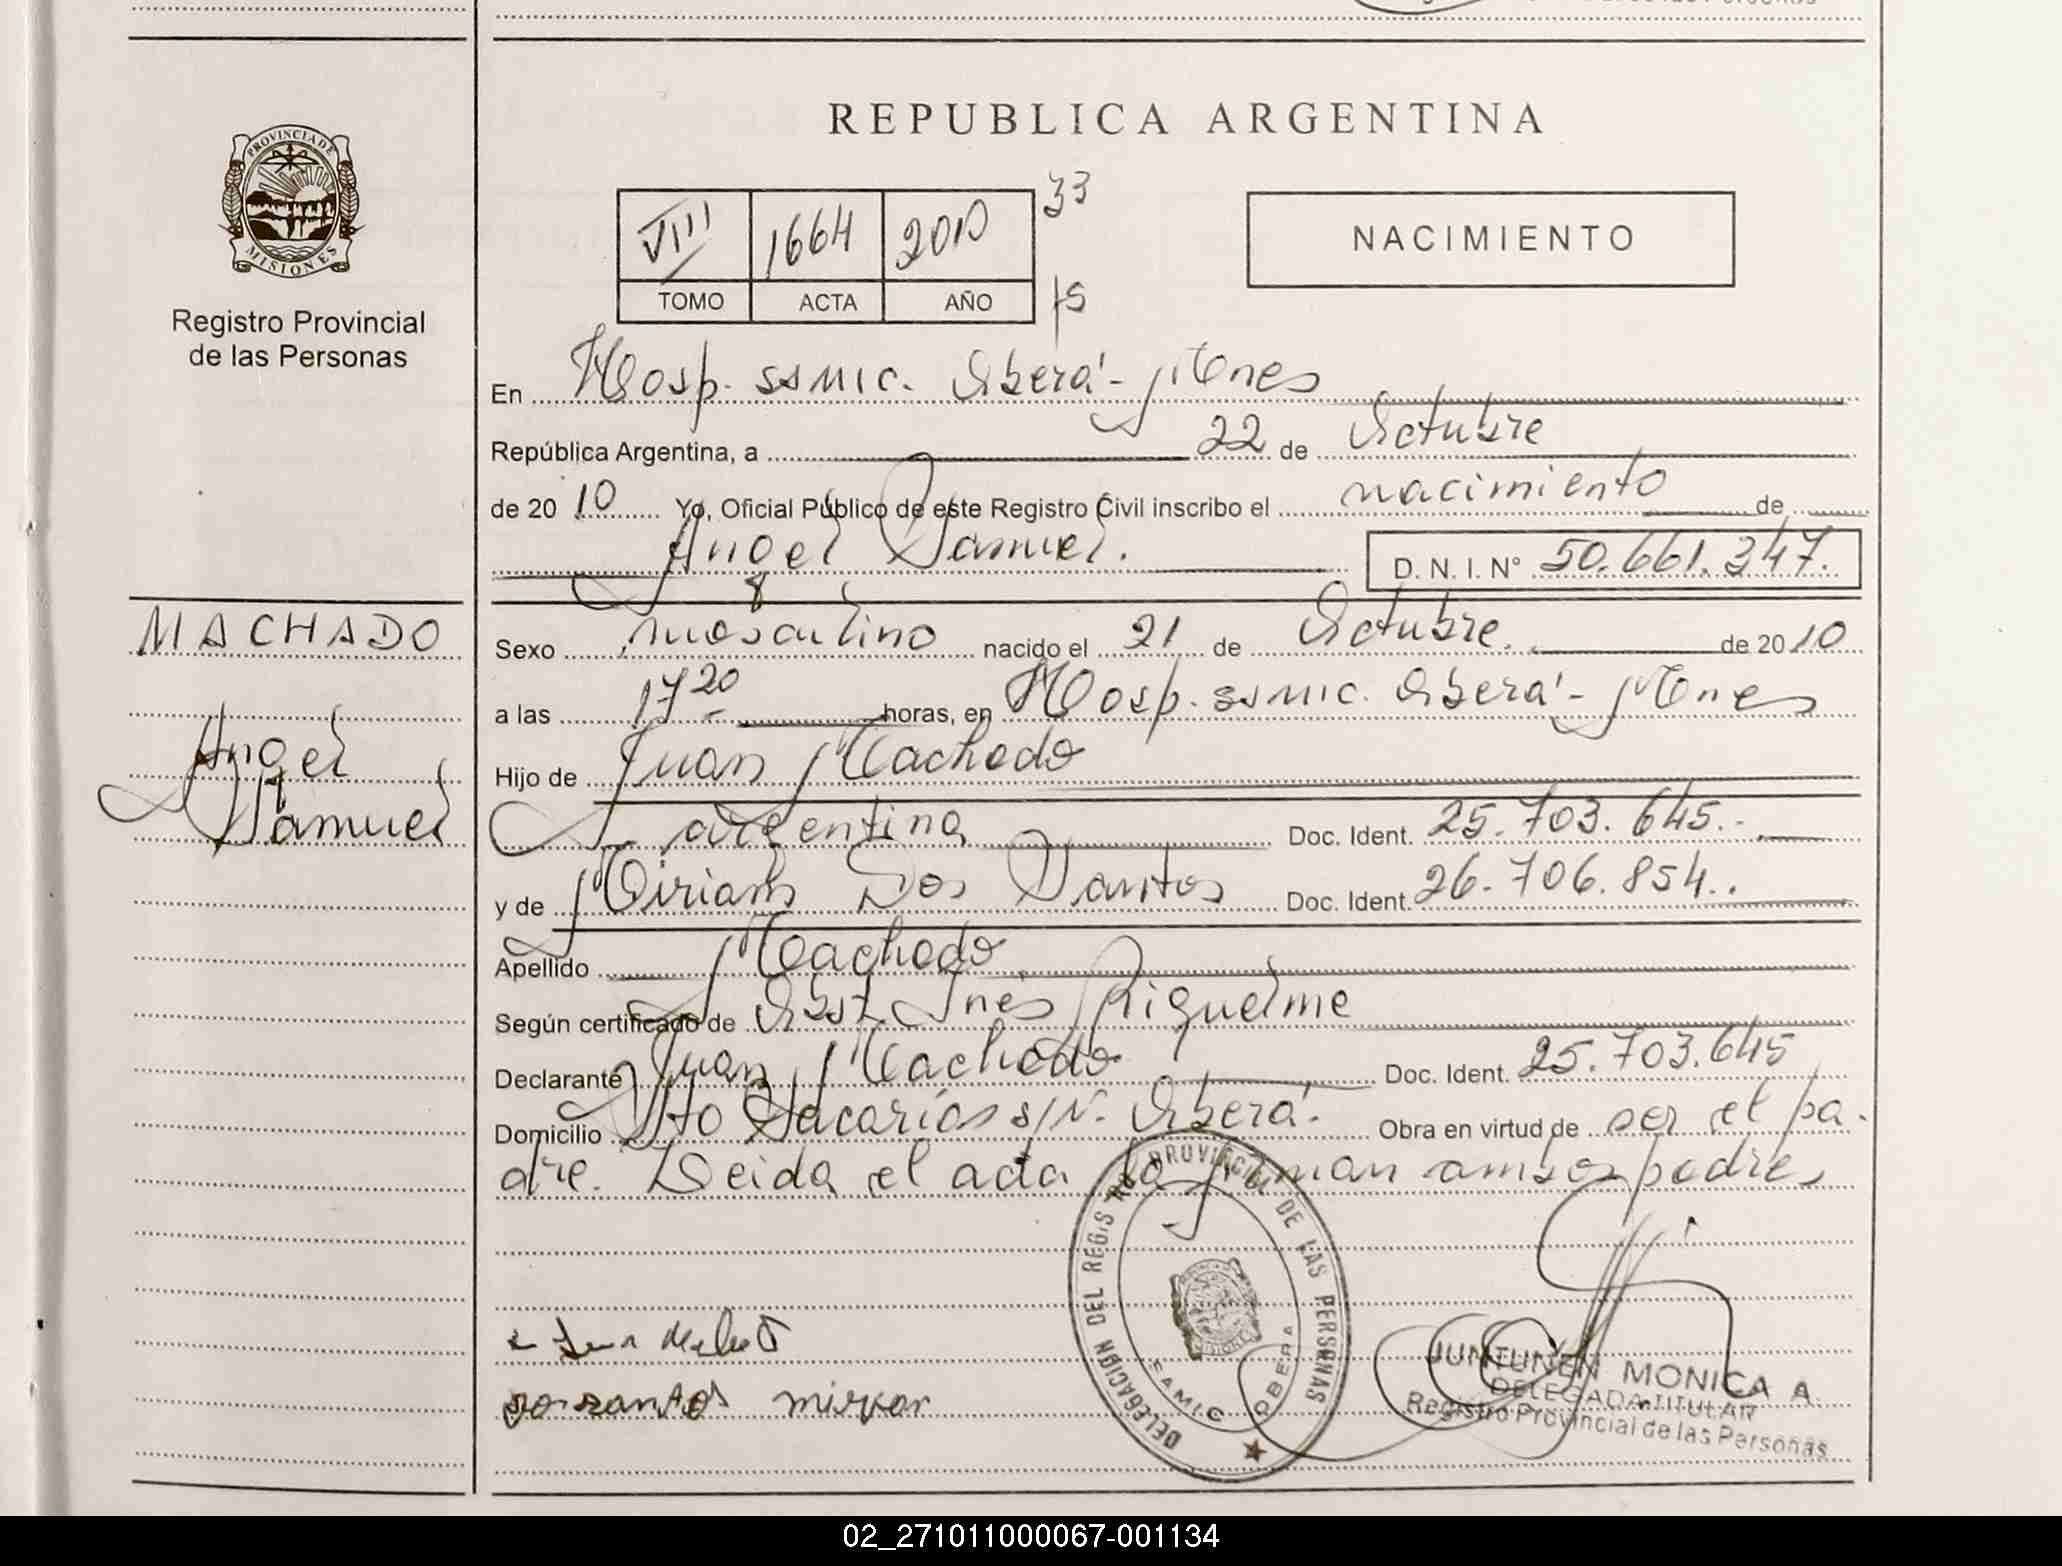 REPUBLICA ARGENTINA
PROVINCIA DE
MISIONES
Registro Provincial
de las Personas
VIII 1664 2010 33
TOMO ACTA AÑO 75
NACIMIENTO
En Hosp. SSMIC. Oberá - Mnes
República Argentina, a 22 de Octubre
de 2010 Yo, Oficial Público de este Registro Civil inscribo el nacimiento de
Angel Samuel. D. N. I. Nº 50.661.347.
MACHADO
Angel
Samuel
Sexo masculino nacido el 21 de Octubre. de 2010
a las 17 20 horas, en Hosp. SSMIC. Oberá - Mnes
Hijo de Juan Machado
argentina Doc. Ident. 25.703.645.
y de Miriam Dos Santos Doc. Ident. 26.706.854.
Apellido Machado
Según certificado de Obst. Inés Riquelme
Declarante Juan Machado Doc. Ident. 25.703.645
Domicilio Bº Zacarías s/N. Oberá. Obra en virtud de ser el pa-
dre. Leida el acta la firman ambos padres
DELEGACION DEL REGISTRO PROVINCIAL DE LAS PERSONAS
SAMIC OBERA
JUNTUNEN MONICA A.
DELEGADA TITULAR
Registro Provincial de las Personas
02_271011000067-001134